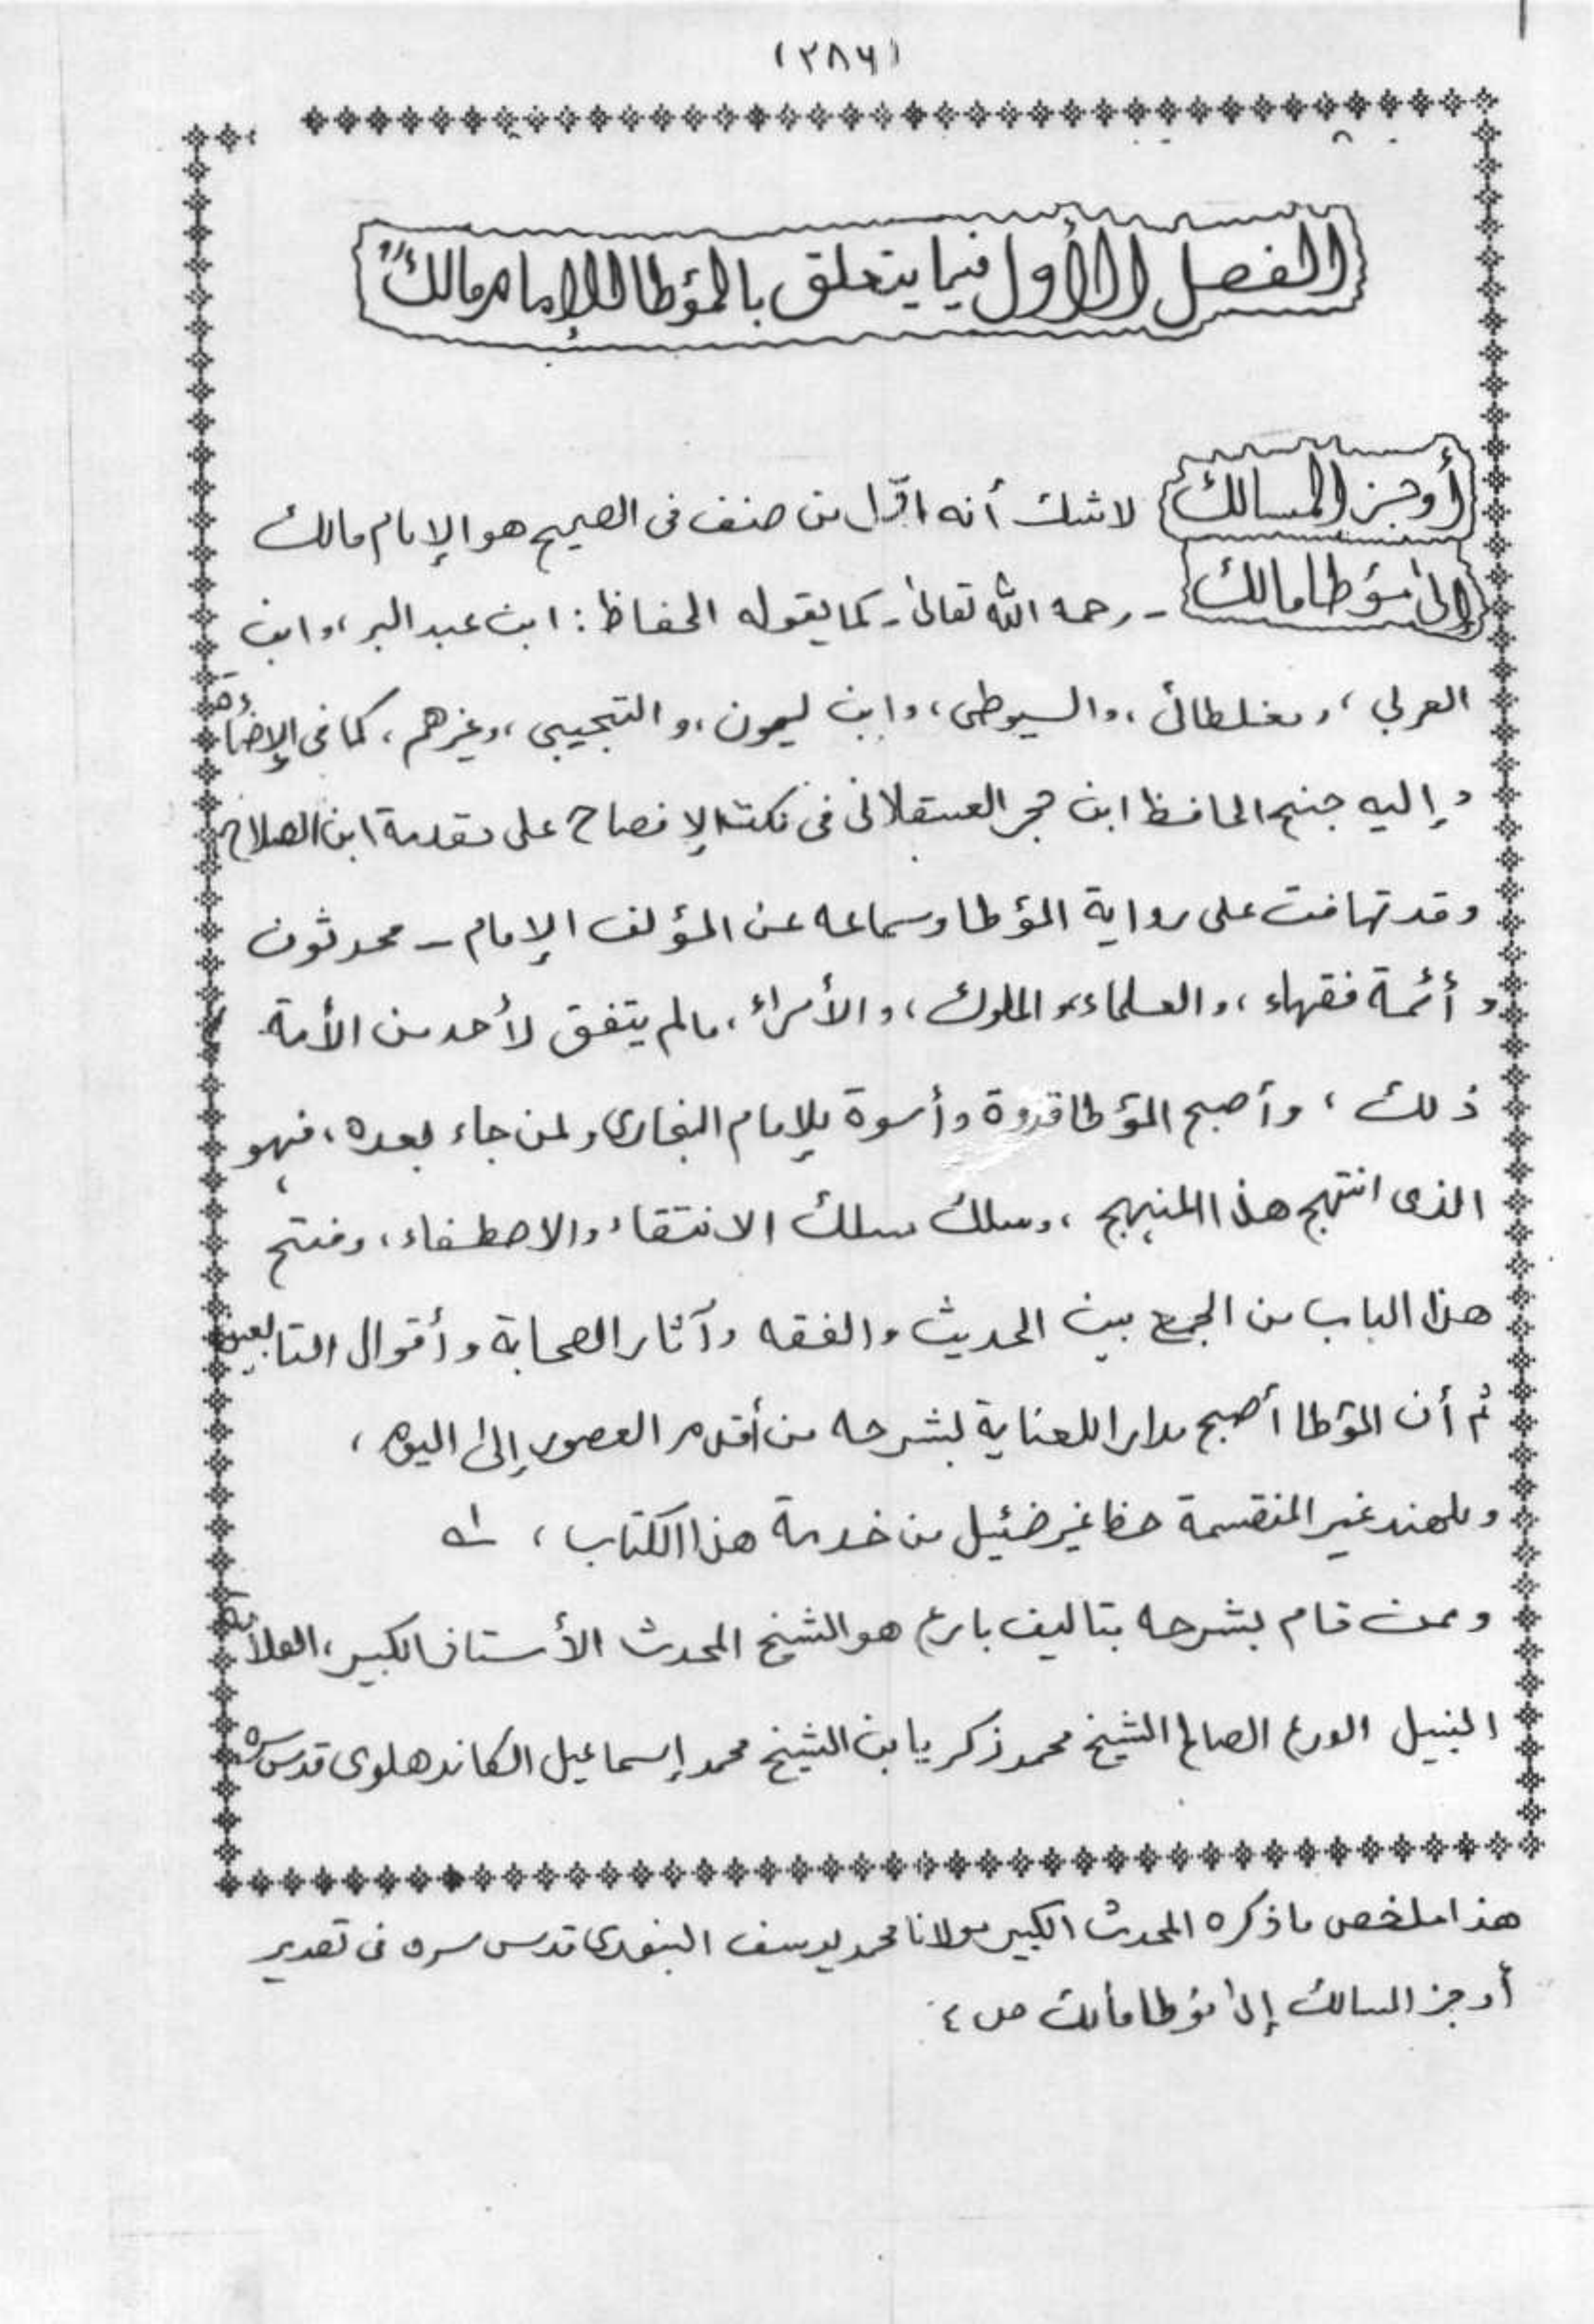 (٢٨٦)
الفصل الأول فيما يتعلق بالمؤطا للإمام مالكؒ
أوجز المسالك لاشك أنه اوّل من صنف فى الصحيح هو الإمام مالك
إلى مؤطا مالك - رحمه الله تعالىٰ - كما يقوله الحفاظ : ابن عبد البر ، وابن
العربي ، ومغلطائ ، والسيوطى ، وابن ليون ، و التجيبى ، وغيرهم ، كما فى الإضاءة
وإليه جنح الحافظ ابن حجر العسقلانى فى نكت الإفصاح على مقدمة ابن الصلاح
وقد تهافت على رواية المؤطا وسماعه عن المؤلف الإمام – محدثون
و أئمة فقهاء ، والعلماء و الملوك ، والأمراء ، مالم يتفق لأحد من الأمة
ذلك ، وأصبح المؤطا قدوة وأسوة للإمام البخارى ولمن جاء بعده ، فهو
الذى انتهج هذا المنهج ، وسلك مسلك الانتقاء والاصطفاء ، وفتح
هذا الباب من الجمع بين الحديث والفقه وآثار الصحابة وأقوال التابعين
ثم أن المؤطا أصبح مدارا للعناية لشرحه من أقدم العصور إلى اليوم ،
وللهند غير المنقسمة حظا غير ضئيل من خدمة هذا الكتاب ، اه
وممن قام بشرحه بتاليف بارع هو الشيخ المحدث الأستاذ الكبير ، العلامة
النبيل الورع الصالح الشيخ محمد زكريا بن الشيخ محمد إسماعيل الكاندهلوى قدس سره
هذا ملخص ما ذكره المحدث الكبير مولانا محمد يوسف البنورى قدس سره فى تصدير
أوجز المسالك إلى مؤطا مالك ص ٤